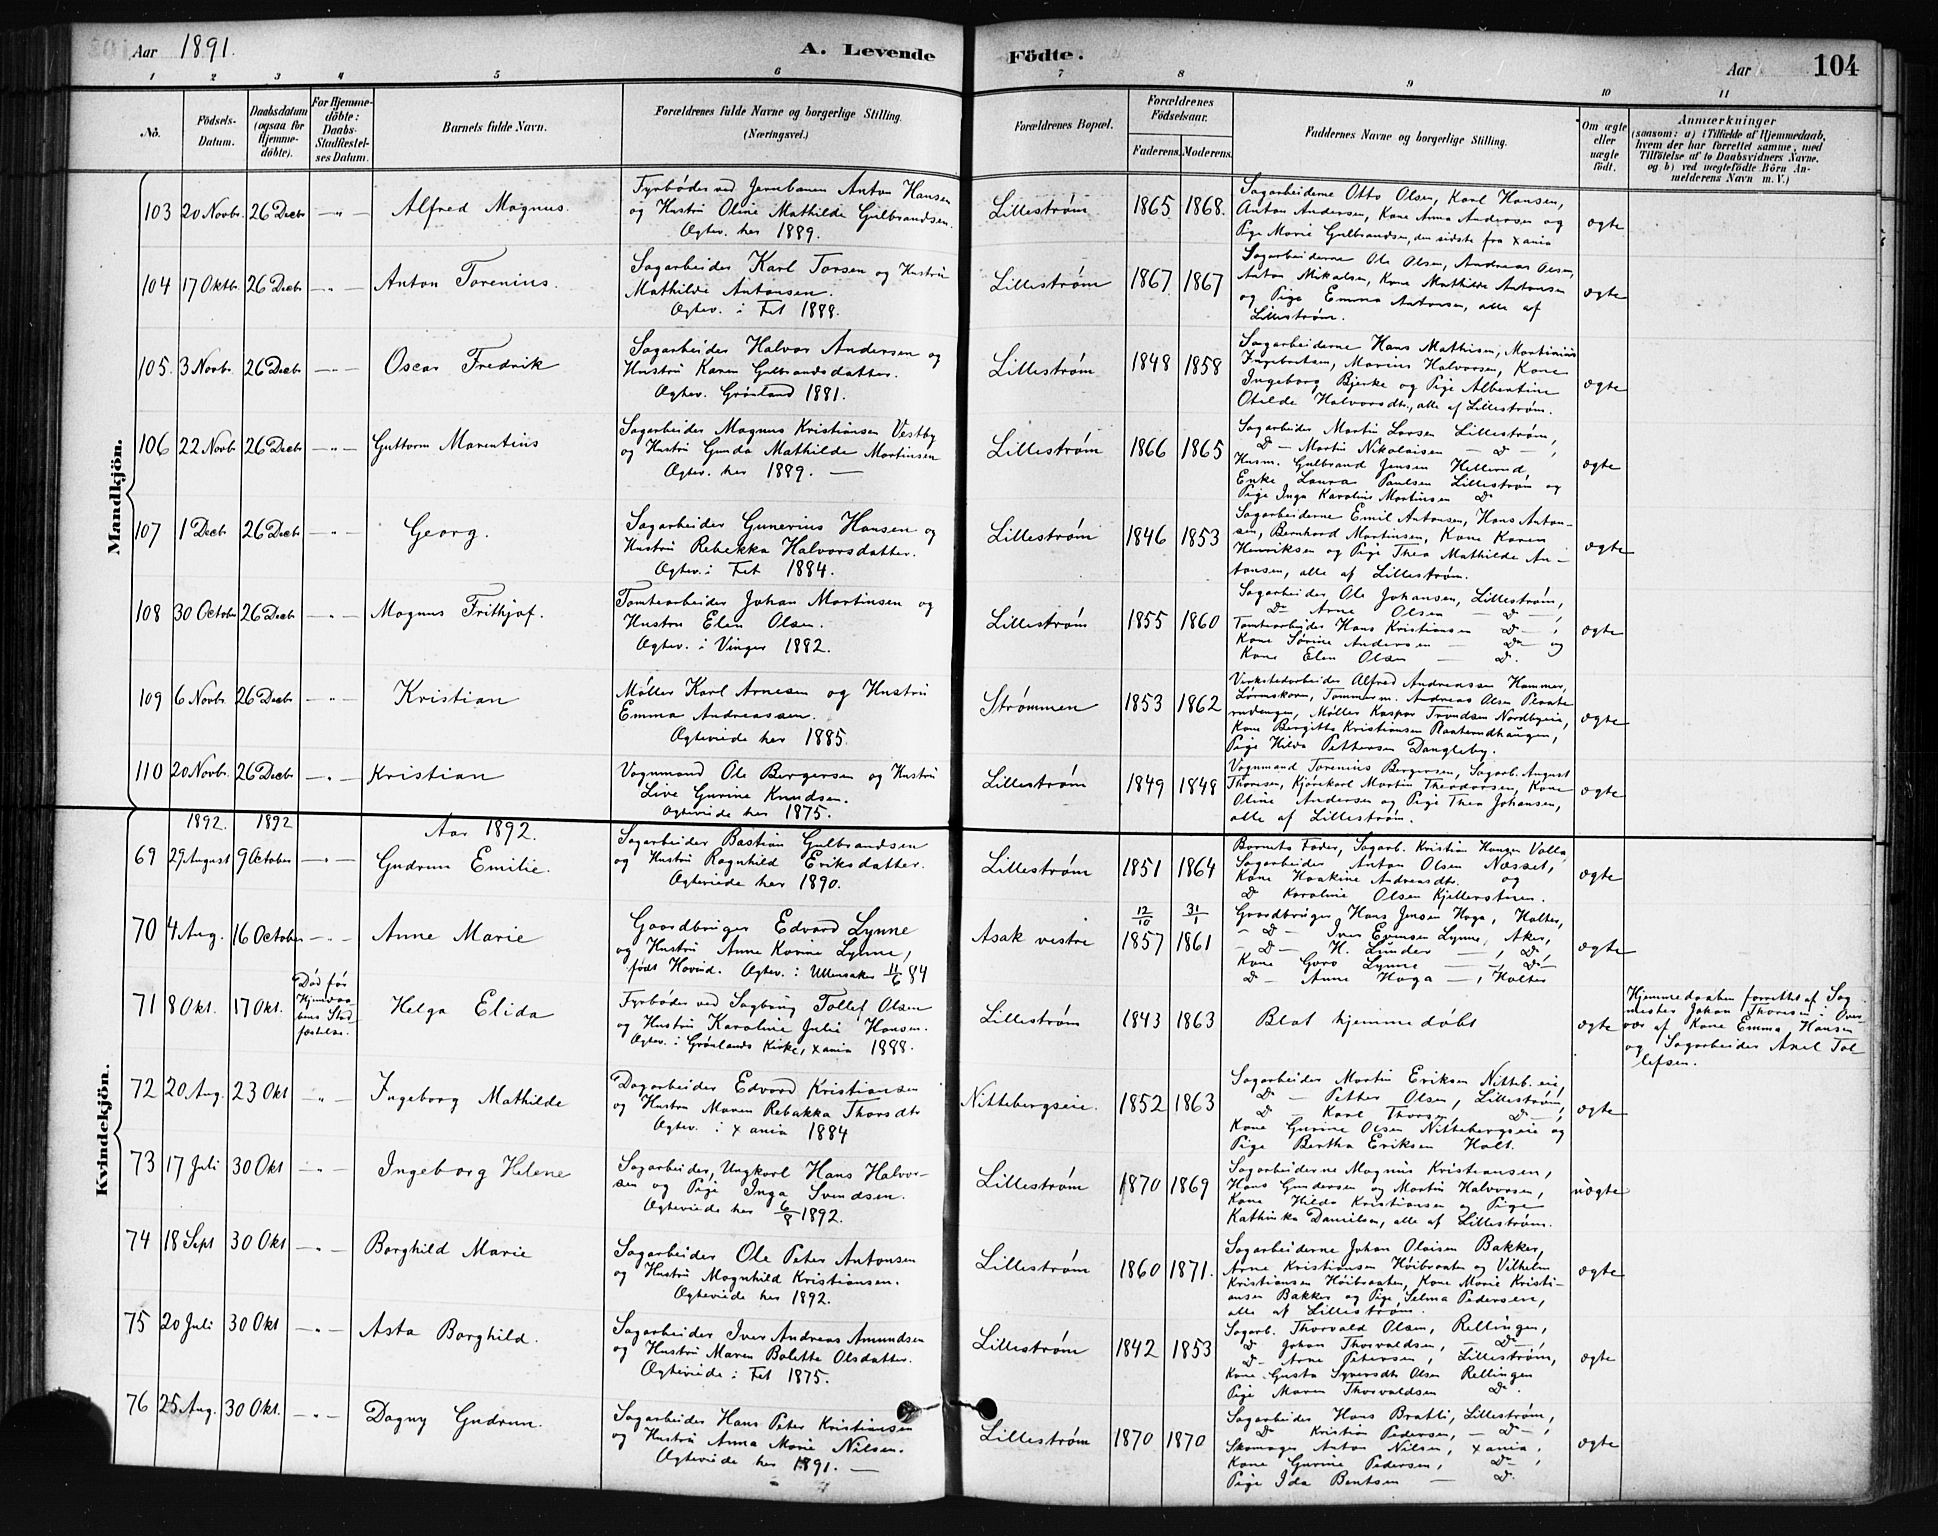 Aar 1891. A. Levende Fødte. Aar 104
1 2 3 4 5 6 7 8 9 10 11
No. Fødsels-Datum. Daabsdatum (ogsaa for Hjemmedøbte). For Hjemmedøbte: Daabs-Stadfæstelses Datum. Barnets fulde Navn. Forældrenes fulde Navne og borgerlige Stilling. (Næringsvei.) Forældrenes Bopæl. Forældrenes Fødselsaar. Faderens. Moderens. Faddernes Navne og borgerlige Stilling. Om ægte eller uægte født. Anmærkninger (saasom: a) i Tilfælde af Hjemmedaab, hvem der har forrettet samme, med Tilføielse af to Daabsvidners Navne. og b) ved uægtefødte Börn Anmelderens Navn m. V.)
Mandkjön.
103 20 Novbr. 26 Decbr — " — Alfred Magnus.
Fyrbøder ved Jernbanen Anton Hansen
og Hustru Oline Mathilde Gulbrandsen.
Ægtev. her 1889.
Lillestrøm 1865 1868.
Sagarbeiderne Otto Olsen, Karl Hansen,
Anton Andersen, Kone Anna Andersen og
Pige Marie Gulbrandsen, den sidste fra Xania
ægte
104 17 Oktbr. 26 Decbr — " — Anton Torenius.
Sagarbeider Karl Torsen og Hustru
Mathilde Antonsen.
Ægtev. i Fet 1888.
Lillestrøm 1867 1867
Sagarbeiderne Ole Olsen, Andreas Olsen,
Anton Mikalsen, Kone Mathilde Antonsen
og Pige Emma Antonsen, alle af
Lillestrøm.
ægte
105. 3 Novbr. 26 Decbr — " — Oscar Fredrik
Sagarbeider Halvor Andersen og
Hustru Karen Gulbrandsdatter.
Ægtev. Grønland 1881.
Lillestrøm 1848 1858
Sagarbeiderne Hans Mathisen, Martinius
Ingebretsen, Marius Halvorsen, Kone
Ingeborg Bjerke og Pige Albertine
Otilde Halvorsdtr., alle af Lillestrøm.
ægte
106 22 Novbr 26 Decbr — " — Guttorm Marentius
Sagarbeider Magnus Kristiansen Vestby
og Hustru Gunda Mathilde Martinsen
Ægtev. her 1889. —
Lillestrøm 1866 1865
Sagarbeider Martin Larsen Lillestrøm,
Do — Martin Nikolaisen — Do — ,
Husm. Gulbrand Jensen Hellerud,
Enke Laura Paulsen Lillestrøm og
Pige Inga Karolius Martinsen Do
ægte
107 1 Decbr 26 Decbr — " — Georg.
Sagarbeider Gunerius Hansen og
Hustru Rebekka Halvorsdatter.
Ægtev. i Fet 1884.
Lillestrøm 1846 1853
Sagarbeiderne Emil Antonsen, Hans Anton-
sen, Bernhard Martinsen, Kone Karen
Henriksen og Pige Thea Mathilde An-
tonsen, alle af Lillestrøm.
ægte
108 30 October 26 Decbr — " — Magnus Frithjof.
Tomtearbeider Johan Martinsen og
Hustru Elen Olsen.
Ægtev. i Vinger 1882.
Lillestrøm 1855 1860
Sagarbeider Ole Johansen, Lillestrøm,
Do Arne Olsen — Do — ,
Tomtearbeider Hans Kristiansen Do — ,
Kone Sørine Andersen — Do — og
Kone Elen Olsen — Do.
ægte
109 6 Novbr. 26 Decbr — " — Kristian
Møller Karl Arnesen og Hustru
Emma Andreassen.
Ægteviede her 1885.
Strømmen 1853 1862
Verkstedarbeider Alfred Andreassen Hammer,
Lørenskoven, Tømmerm. Andreas Olsen
Møller Kaspar Trondsen Nordbyeie,
Kone Bergitte Kristiansen Raaterudhaugen,
Pige Hilda Pettersen Dangleby.
ægte
110 20 Novbr. 26 Decbr — " — Kristian
Vognmand Ole Bergersen og Hustru
Live Gurine Knudsen.
Ægteviede her 1875.
Lillestrøm 1849 1848
Vognmand Torenius Bergersen, Sagarb. August
Thoresen, Kjørekarl Martin Theodorsen, Kone
Oline Andersen og Pige Thea Johansen,
alle af Lillestrøm.
ægte
Kvindekjön.
1892. 1892 Aar 1892.
69 29 August 9 October — " — Gudrun Emilie.
Sagarbeider Bastian Gulbrandsen
og Hustru Ragnhild Eriksdatter.
Ægteviede her 1890.
Lillestrøm 1851 1864
Barnets Fader, Sagarb. Kristian Hansen Valla
Sagarbeider Anton Olsen Næsset,
Kone Haakine Andreasdtr. og
Do Karoline Olsen Kjellerstuen.
ægte
70 4 Aug. 16 October — " — Anne Marie
Gaardbruger Edvard Lynne
og Hustru Anne Karine Lynne,
født Hovind. Ægtev. i Ullensaker 11/6 84
Asak vestre 12/10 1857 31/1 1861
Gaardbruger Hans Jensen Hoga, Holter,
— Do — Iver Evensen Lynne, Aker,
— Do — H. Lunder — , Do,
Kone Goro Lynne — , Do —
Do — Anne Hoga — , Holter
ægte
71 8 Okt. 17 Okt. Død før Hjemmedaabens Stadfæstelse. Helga Elida
Fyrbøder ved Sagbrug Tollef Olsen
og Hustru Karoline Julie Hansen.
Ægtev. i Grønlands Kirke, Xania 1888.
Lillestrøm 1843 1863 Blot hjemmedøbt ægte
Hjemmedaaben forrettet af Sag
mester Johan Thoresen i Over-
vær af Kone Emma Hansen
og Sagarbeider Axel Tol
lefsen.
72 20 Aug. 23 Okt — " — Ingeborg Mathilde
Dagarbeider Edvard Kristiansen
og Hustru Maren Rebakka Thorsdtr
Ægtev. i Xania 1884
Nittebergseie. 1852 1863
Sagarbeider Martin Eriksen Nitteb.eie,
Do — Petter Olsen, Lillestrøm,
Do — Karl Thorsen, Do — ,
Kone Gurine Olsen Nittebergseie og
Pige Bertha Eriksen Holt.
ægte
73 17 Juli 30 Okt — " — Ingeborg Helene
Sagarbeider, Ungkarl Hans Halvor-
sen og Pige Inga Svendsen.
Ægteviede her 6/8 1892.
Lillestrøm 1870 1869
Sagarbeiderne Magnus Kristiansen,
Hans Gundersen og Martin Halvorsen,
Kone Hilda Kristiansen og Pige
Kathinka Danielsen, alle af Lillestrøm.
uægte
74 18 Sept 30 Okt — " — Borghild Marie
Sagarbeider Ole Peter Antonsen
og Hustru Magnhild Kristiansen.
Ægteviede her 1892.
Lillestrøm 1860 1871.
Sagarbeiderne Johan Olaisen Bakker,
Arne Kristiansen Høibraaten og Vilhelm
Kristiansen Høibraaten, Kone Marie Kristi-
ansen Bakker og Pige Selma Pedersen,
alle af Lillestrøm.
ægte
75 20 Juli 30 Okt — " — Asta Borghild.
Sagarbeider Iver Andreas Amundsen
og Hustru Maren Bolette Olsdatter.
Ægteviede i Fet 1875.
Lillestrøm 1842 1853
Sagarb. Thorvald Olsen, Rellingen,
Do Johan Thorvaldsen, — Do — ,
Do — Arne Petersen, Lillestrøm,
Kone Gusta Syversdtr Olsen Rellingen
Pige Maren Thorvaldsen Do.
ægte
76 25 Aug. 30 Okt. — " — Dagny Gudrun.
Sagarbeider Hans Peter Kristiansen
og Hustru Anna Marie Nilsen.
Ægteviede her 1891. —
Lillestrøm 1870 1870
Sagarbeider Hans Bratli, Lillestrøm,
Do Kristian Pedersen, — Do — ,
Skomager Anton Nilsen, Xania,
Kone Gurine Pedersen, Do ,
Pige Ida Bentsen — Do.
ægte